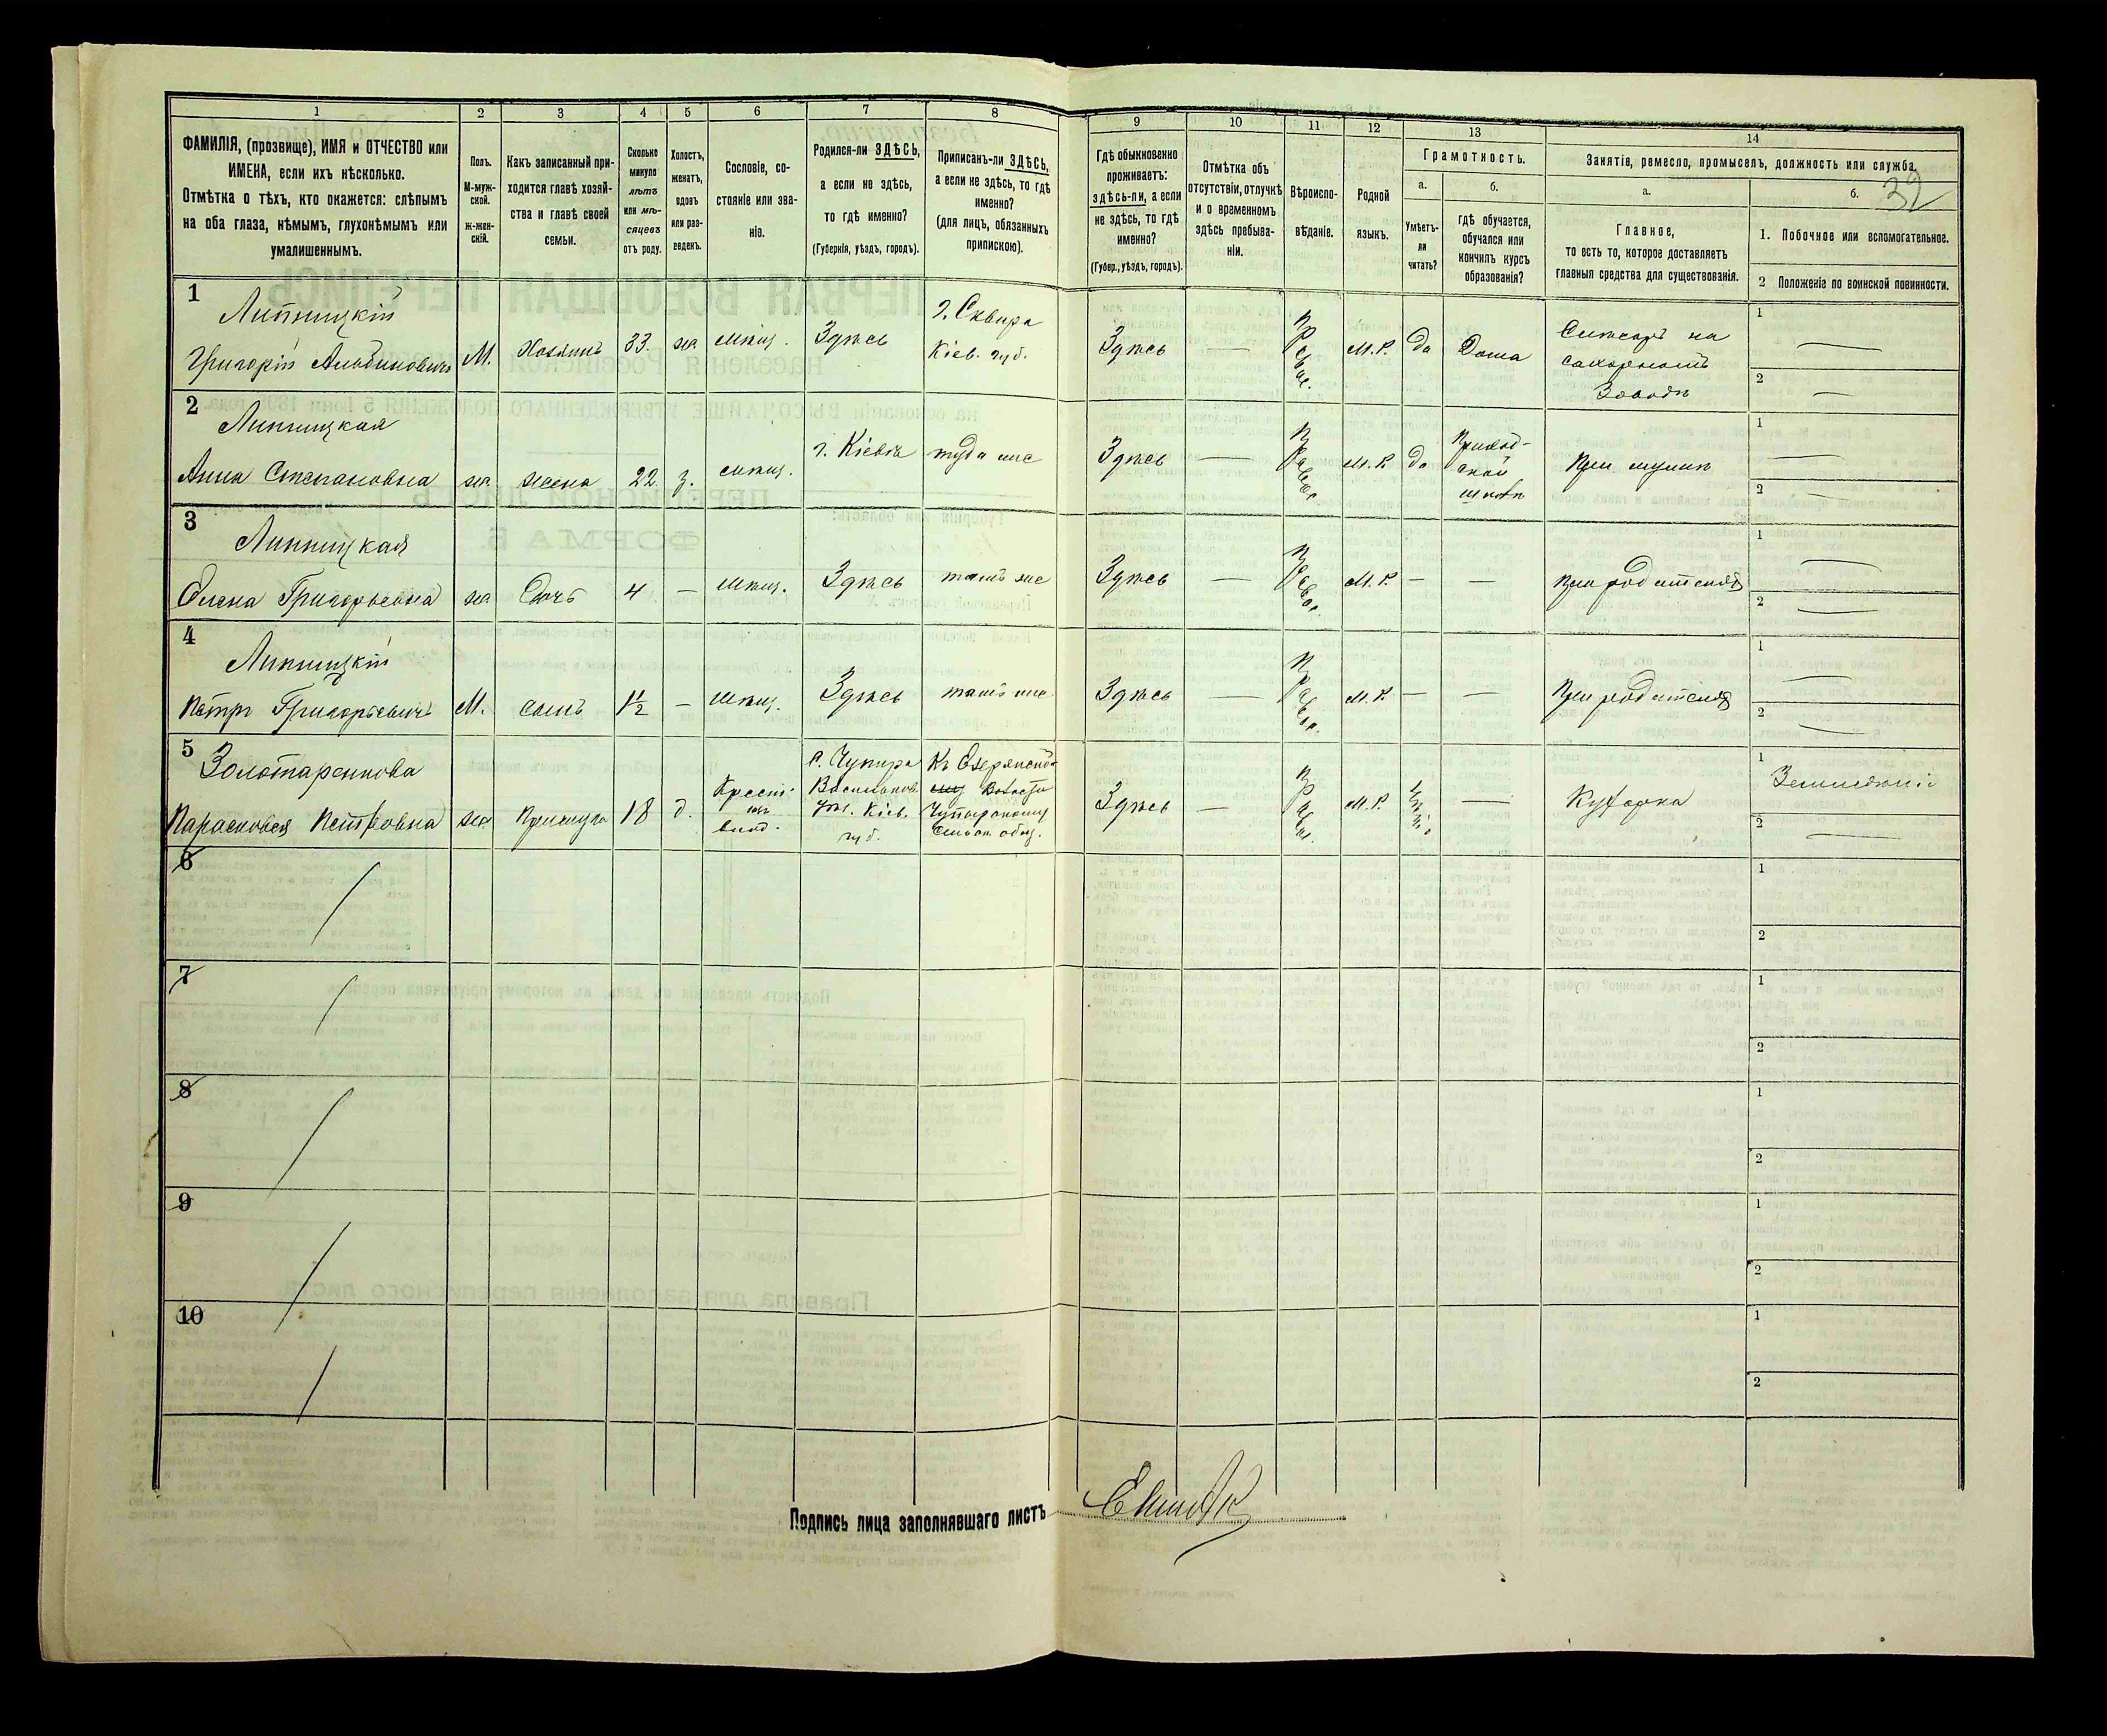 1
2
3
4
5
6
7
8
9
10
11
12
13
14
ФАМИЛІЯ, (прозвище), ИМЯ и ОТЧЕСТВО или
ИМЕНА, если ихъ нѣсколько.
Отмѣтка о тѣхъ, кто окажется: слѣпымъ
на оба глаза, нѣмымъ, глухонѣмымъ или
умалишеннымъ.
Полъ.
М-муж-
ской.
ж-жен-
скій.
Какъ записанный при-
ходится главѣ хозяй-
ства и главѣ своей
семьи.
Сколько
минуло
лѣтъ
или мѣ-
сяцевъ
отъ роду.
Холостъ,
женатъ,
вдовъ
или раз-
веденъ.
Сословіе, со-
стояніе или зва-
ніе.
Родился-ли ЗДѢСЬ,
а если не здѣсь,
то гдѣ именно?
(Губернія, уѣздъ, городъ).
Приписанъ-ли ЗДѢСЬ,
а если не здѣсь, то гдѣ
именно?
(для лицъ, обязанныхъ
припискою).
Гдѣ обыкновенно
проживаетъ:
здѣсь-ли, а если
не здѣсь, то гдѣ
именно?
(Губер., уѣздъ, городъ).
Отмѣтка объ
отсутствіи, отлучкѣ
и о временномъ
здѣсь пребыва-
ніи.
Вѣроиспо-
вѣданіе.
Родной
языкъ.
Грамотность.
а.
Умѣетъ-
ли
читать?
б.
гдѣ обучается,
обучался или
кончилъ курсъ
образованія?
Занятіе, ремесло, промыселъ, должность или служба.
а.
Главное,
то есть то, которое доставляетъ
главныя средства для существованія.
б.
32
1. Побочное или вспомогательное.
2 Положеніе по воинской повинности.
1
Липницкій
Григорій Альбиновичъ
М.
Хозяинъ
33.
же
мѣщ.
Здѣсь
г. Сквира
Кіев. губ.
Здѣсь
—
Правос.
М.Р.
да
Дома
Слесарь на
сахарномъ
Заводѣ
1 —
2 —
2
Липницкая
Анна Степановна
же
жена
22
з.
мѣщ.
г. Кіевъ
туда же
Здѣсь
—
Правос
М.Р.
да
Приход-
ской
школѣ
При мужѣ
1 —
2 —
3
Липницкая
Елена Григорьевна
же
Дочь
4
—
мѣщ.
Здѣсь
тамъ же
Здѣсь
—
Правос
М.Р.
—
—
При родителяхъ
1 —
2 —
4
Липницкій
Петръ Григорьевичъ
М.
сынъ
1½
—
мѣщ.
Здѣсь
тамъ же
Здѣсь
—
Правос.
М.Р.
—
—
При родителяхъ
1 —
2 —
5
Золотаренкова
Парасковея Петровна
же
Прислуга
18
д.
Крест.
изъ
влад.
с. Чупира
Васильков.
уѣз. Кіев.
губ.
Къ Езерянской
Волости
Чупырскому
Сельск. общ.
Здѣсь
—
Правос.
М.Р.
—
Кухарка
1 Земледѣліе
2 —
6
1
2
7
1
2
8
1
2
9
1
2
10
1
2
Подпись лица заполнявшаго листъ